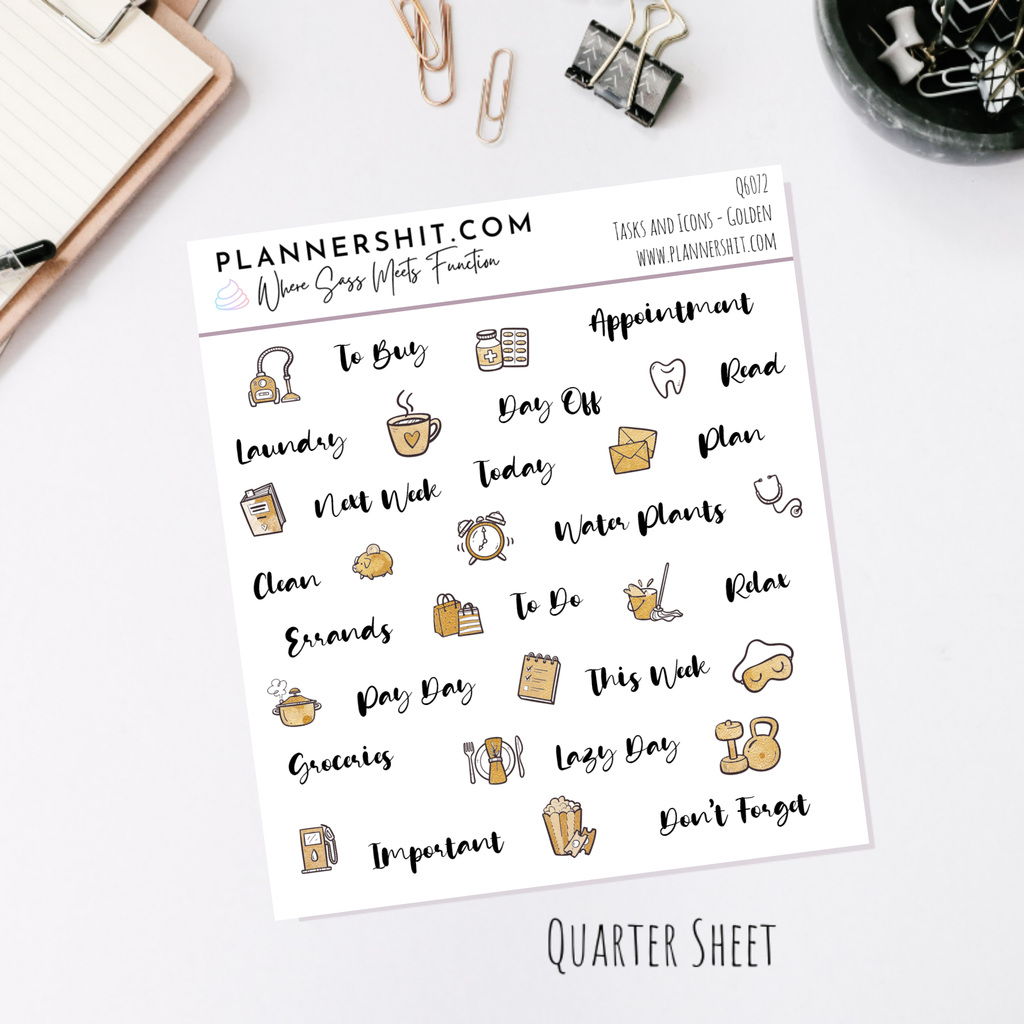 PLANNERSHIT.COM
Where Sass Meets Function
Q6072
Tasks and Icons - Golden
www.plannershit.com
To Buy
Appointment
Read
Laundry
Day Off
Plan
Next Week
Today
Water Plants
Clean
Relax
Errands
To Do
Pay Day
This Week
Groceries
Lazy Day
Important
Don't Forget
Quarter Sheet